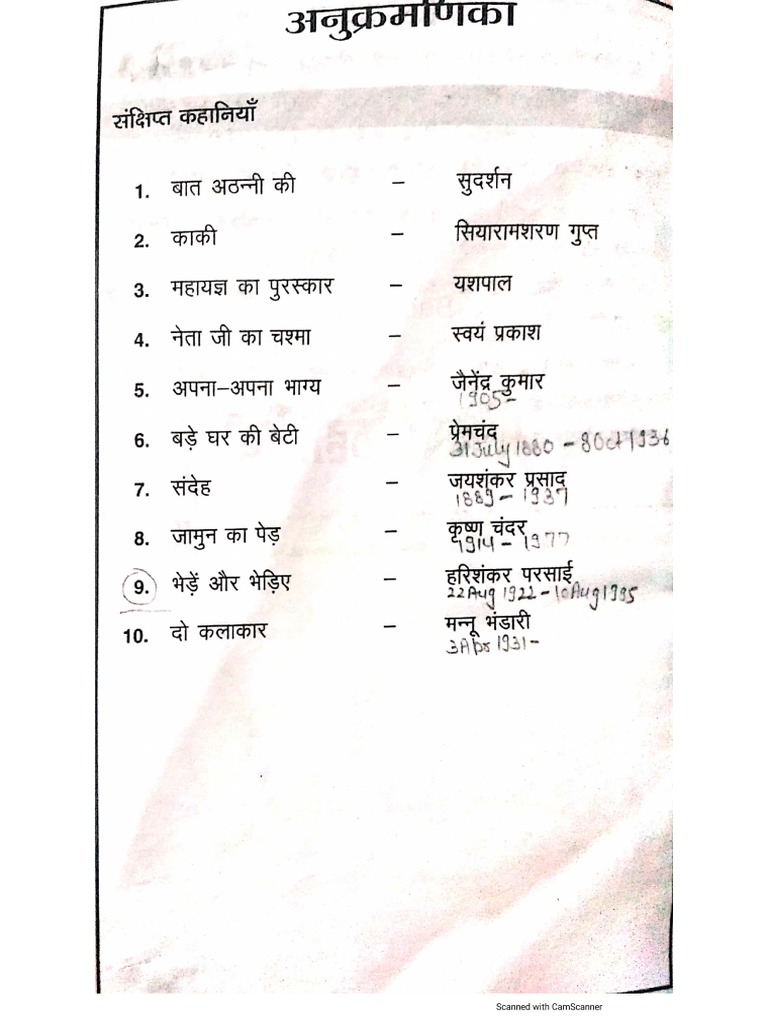 अनुक्रमणिका
संक्षिप्त कहानियाँ
1. बात अठन्नी की – सुदर्शन
2. काकी – सियारामशरण गुप्त
3. महायज्ञ का पुरस्कार – यशपाल
4. नेता जी का चश्मा – स्वयं प्रकाश
5. अपना–अपना भाग्य – जैनेंद्र कुमार
1905-
6. बड़े घर की बेटी – प्रेमचंद
31 July 1880 – 8 Oct 1936
7. संदेह – जयशंकर प्रसाद
1889 – 1937
8. जामुन का पेड़ – कृष्ण चंदर
1914 – 1977
9. भेड़ें और भेड़िए – हरिशंकर परसाई
22 Aug 1922 – 10 Aug 1995
10. दो कलाकार – मन्नू भंडारी
3 Apr 1931 –
Scanned with CamScanner